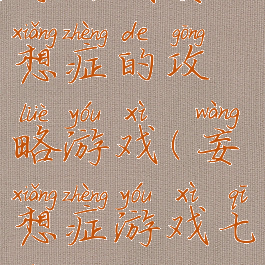 xiǎng zhèng de gōng
想症的攻
lüè yóu xì wàng
略游戏(妄
xiǎng zhèng yóu xì qī
想症游戏七